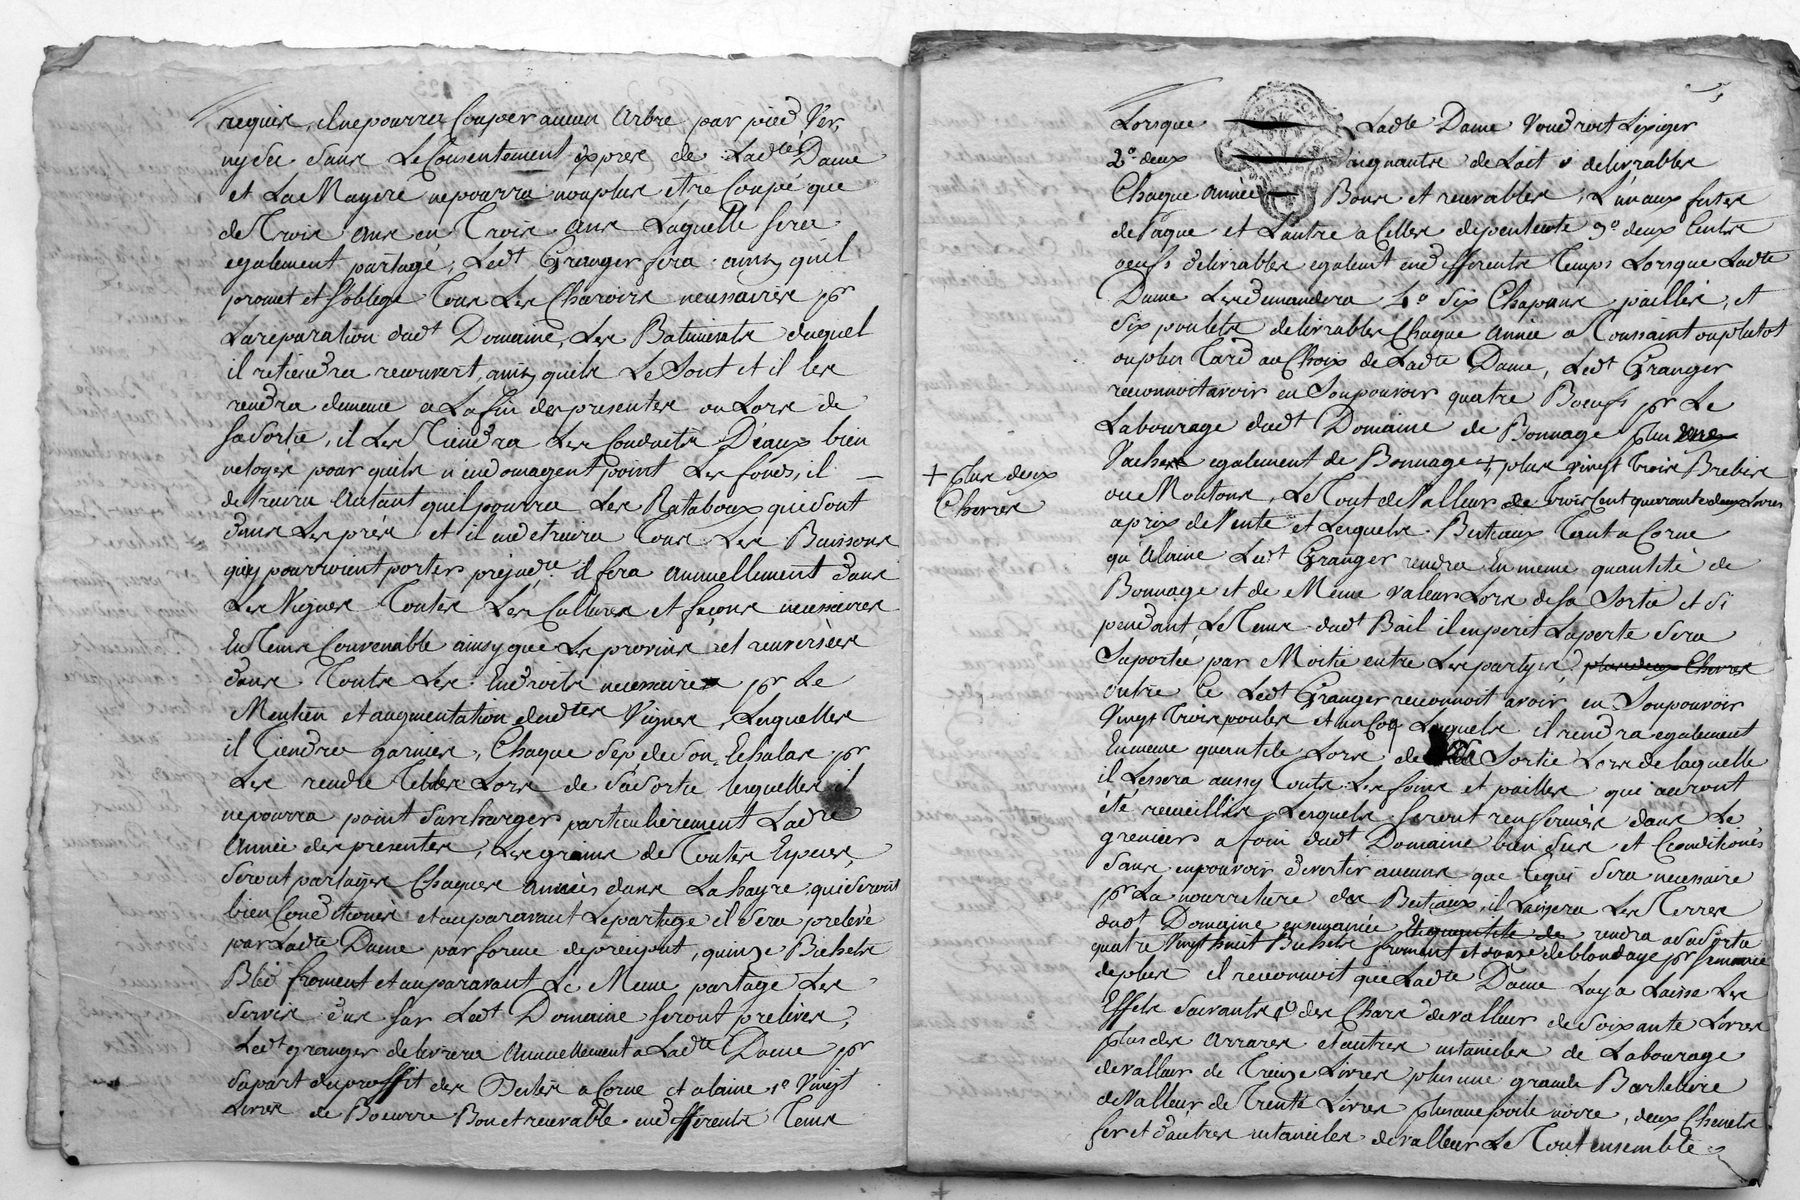 requis, il ne pourra Couper aucun Arbre par pied Ver,
ny Sec Sans Le Consentement éxpres de Ladte Dame
et La Mayere ne pourra non plus etre Coupé que
de Trois Ans en Trois Ans Laquelle Sera
egalement partagé, Ledt Granger fera ainsy quil
promet et Soblege Tous Les Charois necessaires pr
La reparation dudt Domaine, Les Batiments duquel
il retiendra recouvert, ainsy quils Le Sont et il les
rendra de meme a La fin des presentes ou Lors de
Sa Sortie, il Les Tiendra Les Conduits D'eaux bien
netoyés pour quils n'endomagent point Les fonds, il
detruira Autant quil pourra Les Rataboux qui Sont
dans Les prés et il endetruira Tous Les Buissons
quy pourroient porter prejudce. il fera Annuellement dans
Les Vignes Toutes Les Cultures et façons necessaires
En Tems Convenable ainsy que Les provins et renversées
dans Touts Les Endroits necessaires pr Le
Mentien et augmentation desdtes Vignes, Lesquelles
il Tiendra garnies, Chaque Sep de Son Echalas pr
Les rendre Telles Lors de Sa Sortie lesquelles il
ne pourra point Surcharger particulierement Ladre
Année des presentes, Les grains de Toutes Especes,
Seront partagés Chaques années dans La hayre qui Seront
bien Conditionés et auparavant Le partage il Sera prelevé
par Ladte Dame par forme de preciput, quinze Bichets
Bled froment et auparavant Le Meme partage Les
Servis dus Sur Ledt Domaine Seront prelevés,
Ledt granger delivrera Annuellement a Ladte Dame pr
Sa part du proffit des Betes a Corne et a laine 1o Vingt
Livres de Boeurre Bon et recevable en differents Tems
Lorsque Ladte Dame Voudroit L'exiger
2o deux de Lait delivrables
Chaque année Bons et recevables, L'un aux fetes
de Paque et L'autre a Celles de pentecote 3o deux Cents
oeufs delivrables egalemt en differents Temps Lorsque Ladte
Dame Les demandera 4o Six Chapons pailliés, et
Six poulets delivrables Chaque Année a Toussaint ou plutot
ou plus Tard au Choix de Ladte Dame, Ledt Granger
reconnoit avoir en Son pouvoir quatre Boeufs pr Le
Labourage dudt Domaine de Bonnage plus
Vaches egalement de Bonnage + plus vingt Trois Brebis
+ plus deux
Chevres
ou Moutons, Le Tout de Valleur de Trois Cent quarante deux Livres
a prix de Vente et Lesquels Bestiaux Tant a Corne
qu'a laine Ledt Granger rendra En meme quantité de
Bonnage et de Meme valeur Lors de Sa Sortie et Si
pendant Le Tems dudt Bail il en perit La perte Sera
Suportée par Moitié entre Les partyes, plus deux Chevres
outre Ce Ledt Granger reconnoit avoir en Son pouvoir
Vingt Trois poules et un Coq Lesquels il rendra egalement
En meme quantité Lors de Sa Sortie Lors de laquelle
il Lessera aussy Touts Les foins et pailles que auront
été recueillis Lesquels Seront renfermés dans Le
grenier a foin dudt Domaine bien Secs et Conditionés
Sans en pouvoir divertir aucuns que Ce qui Sera necessaire
pr La nourreture des Bestiaux, il Laissera Les Terres
dudt Domaine ensemencée En quantité de rendra a Sa Sortie
quatre Vingt huit Bichets froment et onze de blondaye pr Semence
de plus il reconnoit que Ladte Dame Luy a Laissé Les
Effets Suivants 1o des Chars de valleur de Soixante Livres
plus des Araires et autres ustancilles de Labourage
de valleur de Treize Livres plus une grande
de Valleur de Trente Livres plus une poile noire, deux Chenets
fer et d'autres ustanciles de valleur Le Tout ensemble